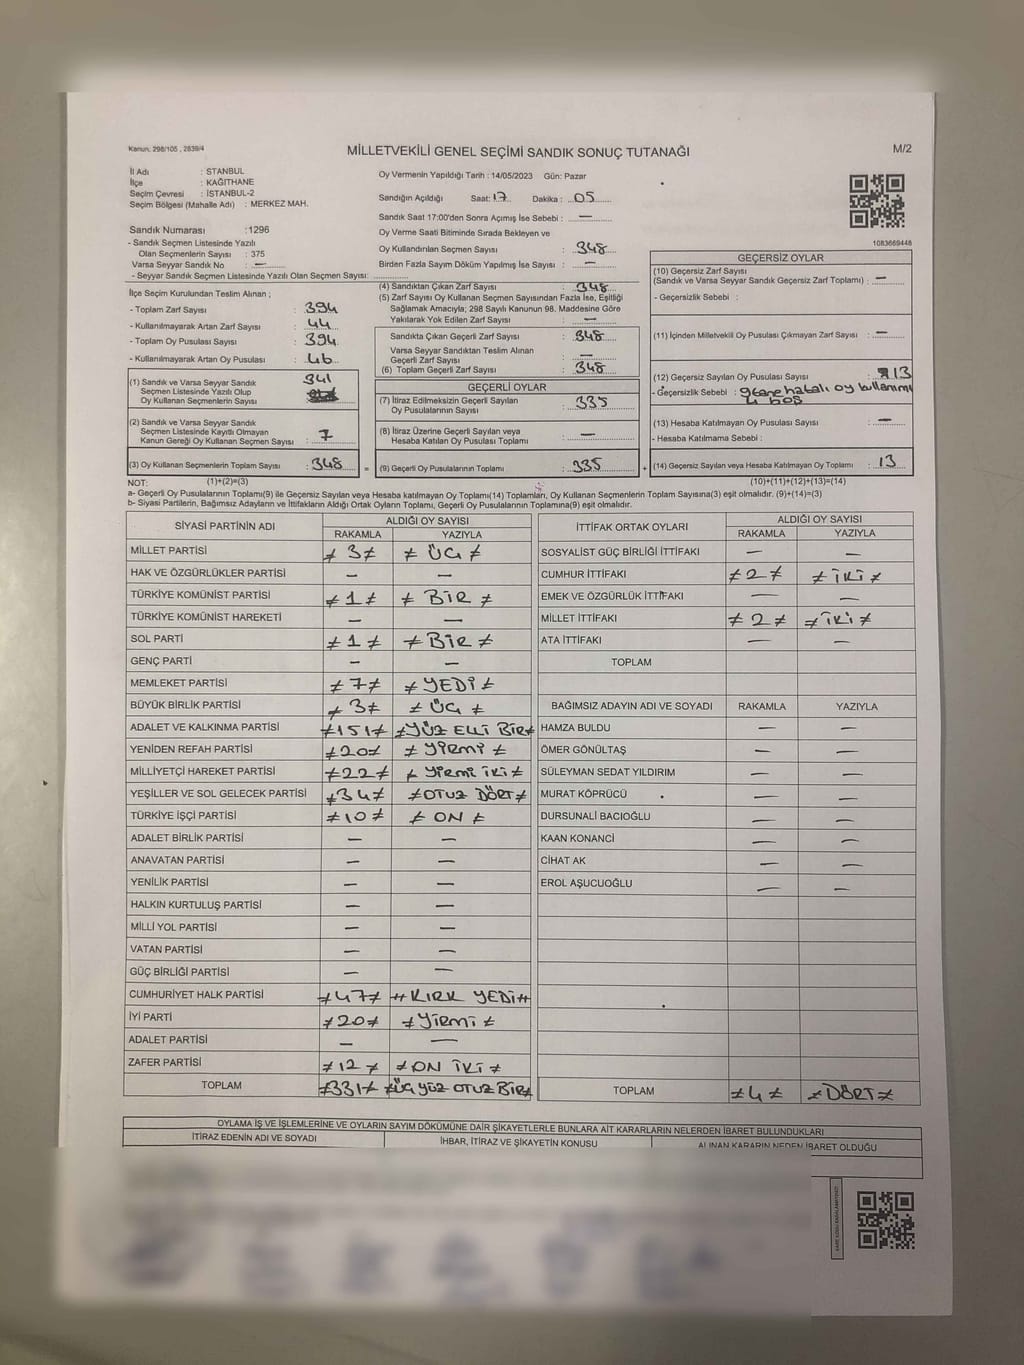 Kanun: 298/105 , 2839/4
MİLLETVEKİLİ GENEL SEÇİMİ SANDIK SONUÇ TUTANAĞI
M/2
İl Adı : STANBUL
İlçe : KAĞITHANE
Seçim Çevresi : İSTANBUL-2
Seçim Bölgesi (Mahalle Adı) : MERKEZ MAH.
Sandık Numarası :1296
- Sandık Seçmen Listesinde Yazılı
Olan Seçmenlerin Sayısı : 375
Varsa Seyyar Sandık No : —
- Seyyar Sandık Seçmen Listesinde Yazılı Olan Seçmen Sayısı:
Oy Vermenin Yapıldığı Tarih : 14/05/2023 Gün: Pazar
Sandığın Açıldığı Saat: 17 Dakika : 05
Sandık Saat 17:00'den Sonra Açımış İse Sebebi : —
Oy Verme Saati Bitiminde Sırada Bekleyen ve
Oy Kullandırılan Seçmen Sayısı : 348
Birden Fazla Sayım Döküm Yapılmış İse Sayısı : —
1083669446
İlçe Seçim Kurulundan Teslim Alınan ;
- Toplam Zarf Sayısı : 394
- Kullanılmayarak Artan Zarf Sayısı : 44
- Toplam Oy Pusulası Sayısı : 394
- Kullanılmayarak Artan Oy Pusulası : 46
(1) Sandık ve Varsa Seyyar Sandık
Seçmen Listesinde Yazılı Olup
Oy Kullanan Seçmenlerin Sayısı : 341
(2) Sandık ve Varsa Seyyar Sandık
Seçmen Listesinde Kayıtlı Olmayan
Kanun Gereği Oy Kullanan Seçmen Sayısı : 7
(3) Oy Kullanan Seçmenlerin Toplam Sayısı : 348 =
(4) Sandıktan Çıkan Zarf Sayısı : 348
(5) Zarf Sayısı Oy Kullanan Seçmen Sayısından Fazla İse, Eşitliği
Sağlamak Amacıyla; 298 Sayılı Kanunun 98. Maddesine Göre
Yakılarak Yok Edilen Zarf Sayısı : —
Sandıkta Çıkan Geçerli Zarf Sayısı : 348
Varsa Seyyar Sandıktan Teslim Alınan
Geçerli Zarf Sayısı : —
(6) Toplam Geçerli Zarf Sayısı : 348
GEÇERLİ OYLAR
(7) İtiraz Edilmeksizin Geçerli Sayılan
Oy Pusulalarının Sayısı : 335
(8) İtiraz Üzerine Geçerli Sayılan veya
Hesaba Katılan Oy Pusulası Toplamı : —
(9) Geçerli Oy Pusulalarının Toplamı : 335 +
GEÇERSİZ OYLAR
(10) Geçersiz Zarf Sayısı
(Sandık ve Varsa Seyyar Sandık Geçersiz Zarf Toplamı) : —
- Geçersizlik Sebebi :
(11) İçinden Milletvekili Oy Pusulası Çıkmayan Zarf Sayısı : —
(12) Geçersiz Sayılan Oy Pusulası Sayısı : 13
- Geçersizlik Sebebi : 9 tane hatalı oy kullanımı
4 boş
(13) Hesaba Katılmayan Oy Pusulası Sayısı : —
- Hesaba Katılmama Sebebi :
(14) Geçersiz Sayılan veya Hesaba Katılmayan Oy Toplamı : 13
NOT: (1)+(2)=(3) (10)+(11)+(12)+(13)=(14)
a- Geçerli Oy Pusulalarının Toplamı(9) ile Geçersiz Sayılan veya Hesaba katılmayan Oy Toplamı(14) Toplamları, Oy Kullanan Seçmenlerin Toplam Sayısına(3) eşit olmalıdır. (9)+(14)=(3)
b- Siyasi Partilerin, Bağımsız Adayların ve İttifakların Aldığı Ortak Oyların Toplamı, Geçerli Oy Pusulalarının Toplamına(9) eşit olmalıdır.
SİYASİ PARTİNİN ADI ALDIĞI OY SAYISI
RAKAMLA YAZIYLA
MİLLET PARTİSİ ≠ 3 ≠ ≠ ÜÇ ≠
HAK VE ÖZGÜRLÜKLER PARTİSİ — —
TÜRKİYE KOMÜNİST PARTİSİ ≠ 1 ≠ ≠ BİR ≠
TÜRKİYE KOMÜNİST HAREKETİ — —
SOL PARTİ ≠ 1 ≠ ≠ BİR ≠
GENÇ PARTİ — —
MEMLEKET PARTİSİ ≠ 7 ≠ ≠ YEDİ ≠
BÜYÜK BİRLİK PARTİSİ ≠ 3 ≠ ≠ ÜÇ ≠
ADALET VE KALKINMA PARTİSİ ≠ 151 ≠ ≠ YÜZ ELLİ BİR ≠
YENİDEN REFAH PARTİSİ ≠ 20 ≠ ≠ YİRMİ ≠
MİLLİYETÇİ HAREKET PARTİSİ ≠ 22 ≠ ≠ YİRMİ İKİ ≠
YEŞİLLER VE SOL GELECEK PARTİSİ ≠ 34 ≠ ≠ OTUZ DÖRT ≠
TÜRKİYE İŞÇİ PARTİSİ ≠ 10 ≠ ≠ ON ≠
ADALET BİRLİK PARTİSİ — —
ANAVATAN PARTİSİ — —
YENİLİK PARTİSİ — —
HALKIN KURTULUŞ PARTİSİ — —
MİLLİ YOL PARTİSİ — —
VATAN PARTİSİ — —
GÜÇ BİRLİĞİ PARTİSİ — —
CUMHURİYET HALK PARTİSİ ≠ 47 ≠ ≠ KIRK YEDİ ≠
İYİ PARTİ ≠ 20 ≠ ≠ YİRMİ ≠
ADALET PARTİSİ — —
ZAFER PARTİSİ ≠ 12 ≠ ≠ ON İKİ ≠
TOPLAM ≠ 331 ≠ ≠ ÜÇ YÜZ OTUZ BİR ≠
İTTİFAK ORTAK OYLARI ALDIĞI OY SAYISI
RAKAMLA YAZIYLA
SOSYALİST GÜÇ BİRLİĞİ İTTİFAKI — —
CUMHUR İTTİFAKI ≠ 2 ≠ ≠ İKİ ≠
EMEK VE ÖZGÜRLÜK İTTİFAKI — —
MİLLET İTTİFAKI ≠ 2 ≠ ≠ İKİ ≠
ATA İTTİFAKI — —
TOPLAM
BAĞIMSIZ ADAYIN ADI VE SOYADI RAKAMLA YAZIYLA
HAMZA BULDU — —
ÖMER GÖNÜLTAŞ — —
SÜLEYMAN SEDAT YILDIRIM — —
MURAT KÖPRÜCÜ — —
DURSUNALİ BACIOĞLU — —
KAAN KONANCİ — —
CİHAT AK — —
EROL AŞUCUOĞLU — —
TOPLAM ≠ 4 ≠ ≠ DÖRT ≠
OYLAMA İŞ VE İŞLEMLERİNE VE OYLARIN SAYIM DÖKÜMÜNE DAİR ŞİKAYETLERLE BUNLARA AİT KARARLARIN NELERDEN İBARET BULUNDUKLARI
İTİRAZ EDENİN ADI VE SOYADI İHBAR, İTİRAZ VE ŞİKAYETİN KONUSU ALINAN KARARIN NEDEN İBARET OLDUĞU